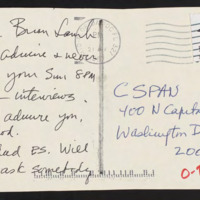 . Brian Lamb
admire & never
your Sun 8PM
- interviews.
admire you.
od.
had ES. Will
ask somebody
CSPAN
400 N Capito
Washington D
200
0-9